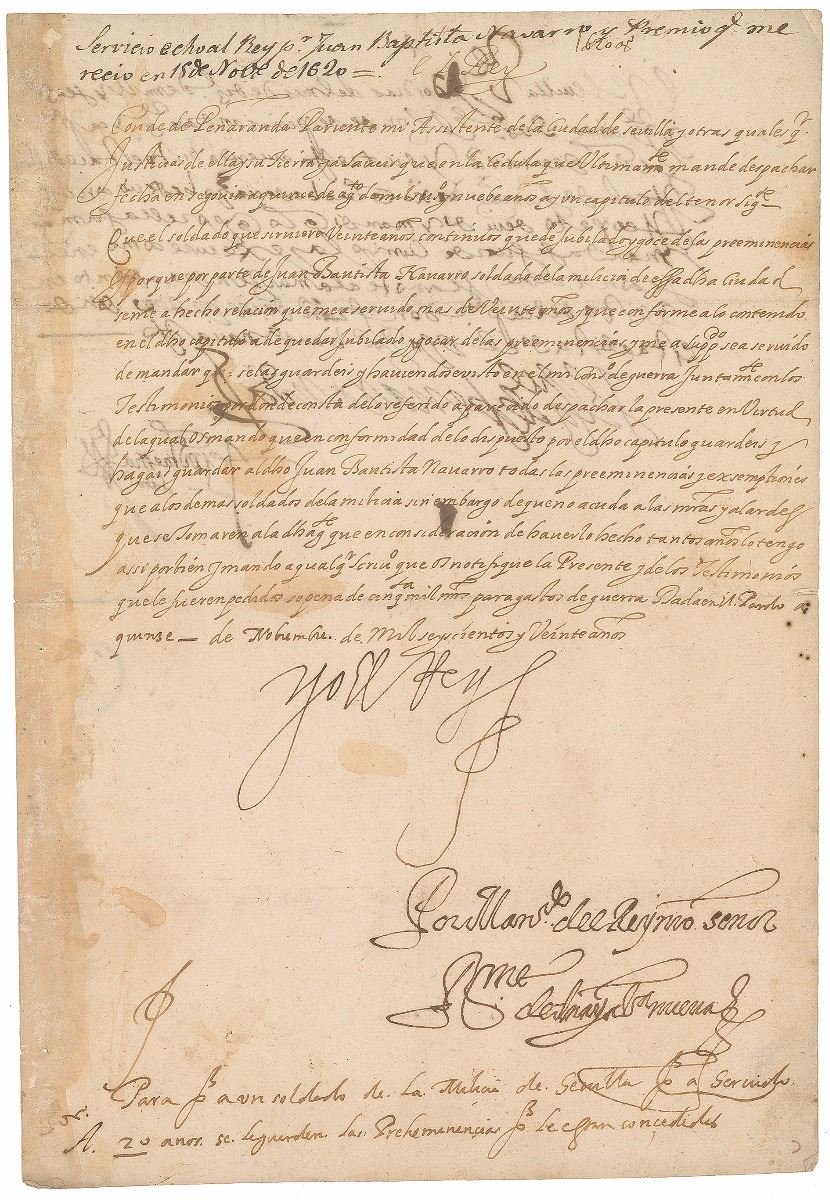 Servicio echo al Rey pr. Juan Baptista Navarro y Premio qe. me
recio en 15 de Nove. de 1620 =
El Rey
Conde de Peñaranda Pariente mi Assistente de la Ciudad de sevilla y otras quales qr.
Justicias de ella y su Tierra ya saueis que en la Cedula que Ultimamte. mande despachar
fecha en a quince de agto. de mil seis.os y nuebe años ay un capitulo del tenor sigte.
Que el soldado que siruiere Veinte años continuos quede Jubilado y goce de las preeminencias
Y porque por parte de Juan Bautista Navarro soldado de la milicia de essa dha Ciudad
se me a hecho relacion que me a seruido mas de Veinte años y que conforme a lo contenido
en el dho capitulo a de quedar Jubilado y goçar de las preeminencias y me a suppdo. sea seruido
de mandar q. se las guardeis y hauiendose visto en el mi Conso. de guerra Juntamte. con los
Testimonios por donde consta de lo referido a parecido despachar la presente en Virtud
de la qual os mando que en conformidad de lo dispuesto por el dho capitulo guardeis y
hagais guardar al dho Juan Bautista Navarro todas las preeminencias y exsemptiones
que a los demas soldados de la milicia sin embargo de que no acuda a las mras y alardes
que se tomaren a la dha gte. que en consideracion de hauerlo hecho tantos años lo tengo
assi por bien y mando a qualqr. scriuo. que os notifique la Presente y de los Testimonios
que le fueren pedidos so pena de cinqta. mil mrs para gastos de guerra Dada en El Pardo a
quinse — de Nobiembre. de Mil seyscientos y Veinte años
Yo el Rey
Por Mando. del Rey nro señor
Bme
de Anaya Villanueva
Para q a un soldado de la Milicia de Sevilla q a Seruido
20 anos. se le guarden. las Preheminencias q le estan concedidas